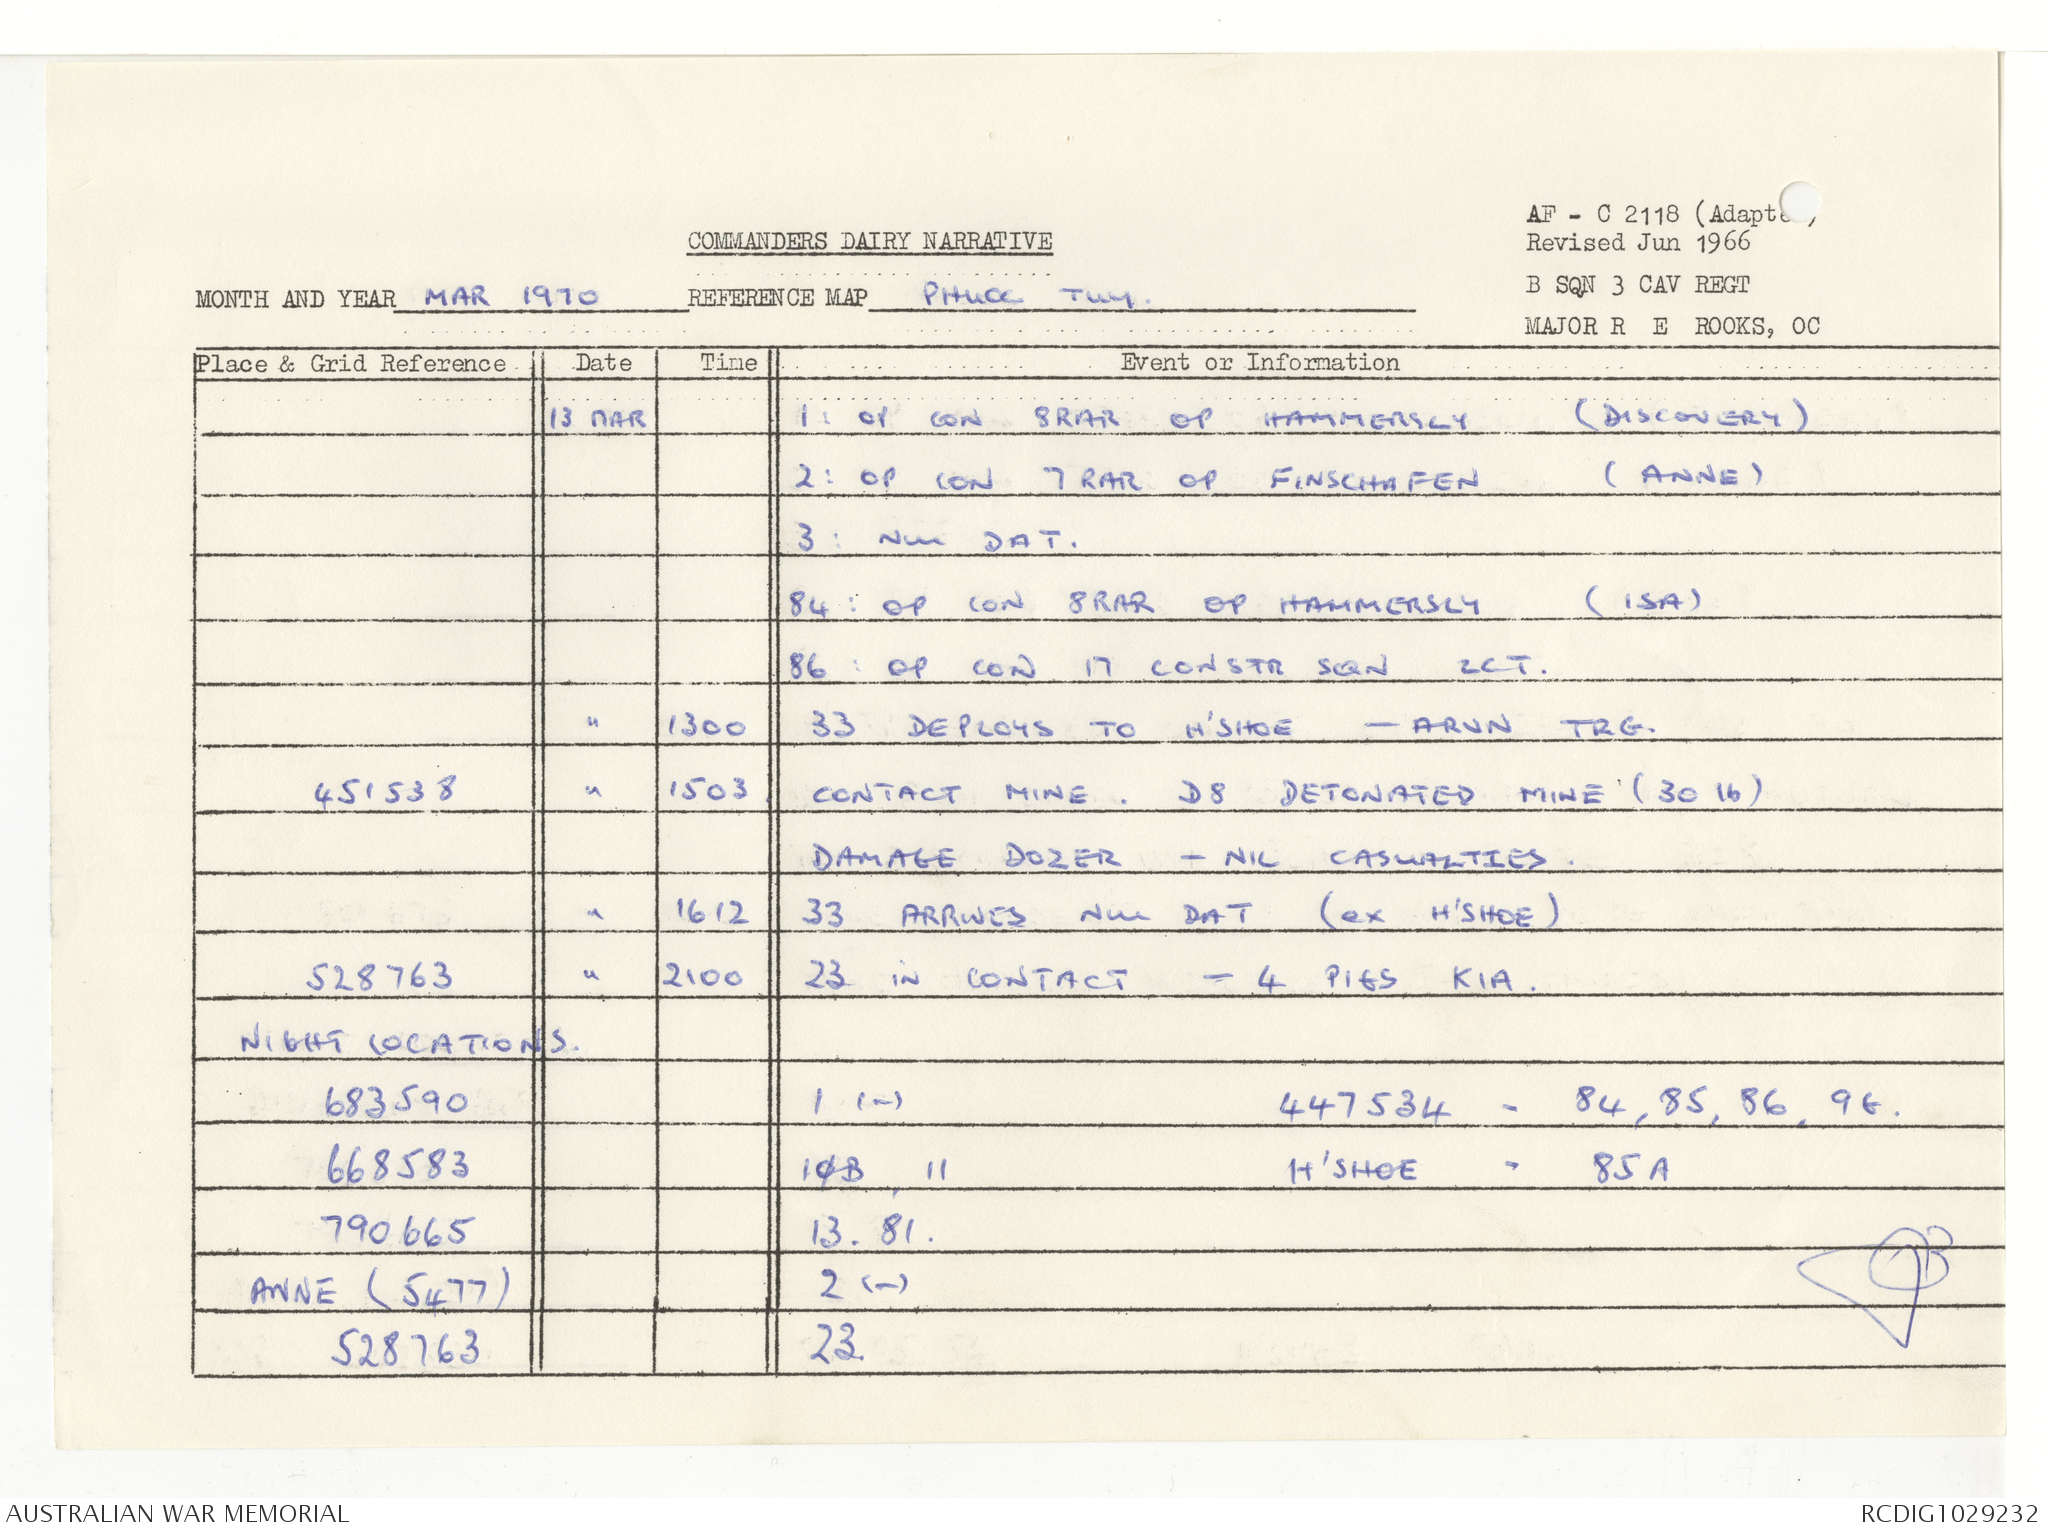 AF - C 2118 (Adapte )
COMMANDERS DAIRY NARRATIVE
Revised Jun 1966
B SQN 3 CAV REGT
MONTH AND YEAR MAR 1970 REFERENCE MAP PHUOC TUY.
MAJOR R E ROOKS, OC
Place & Grid Reference Date Time Event or Information
13 MAR 1: OP CON 8RAR OP HAMMERSLY (DISCOVERY)
2: OP CON 7RAR OP FINSCHAFEN (ANNE)
3: NUI DAT.
84: OP CON 8RAR OP HAMMERSLY (ISA)
86: OP CON 17 CONSTR SQN LCT.
" 1300 33 DEPLOYS TO H'SHOE - ARVN TRG.
451538 " 1503 CONTACT MINE. D8 DETONATED MINE (30 lb)
DAMAGE DOZER - NIL CASUALTIES.
" 1612 33 ARRIVES NUI DAT (ex H'SHOE)
528763 " 2100 23 IN CONTACT - 4 PIGS KIA.
NIGHT LOCATIONS.
683590 1 (-) 447534 - 84, 85, 86, 9E.
668583 10B, 11 H'SHOE - 85A
790665 13. 81.
ANNE (5477) 2 (-)
528763 23.
AUSTRALIAN WAR MEMORIAL RCDIG1029232